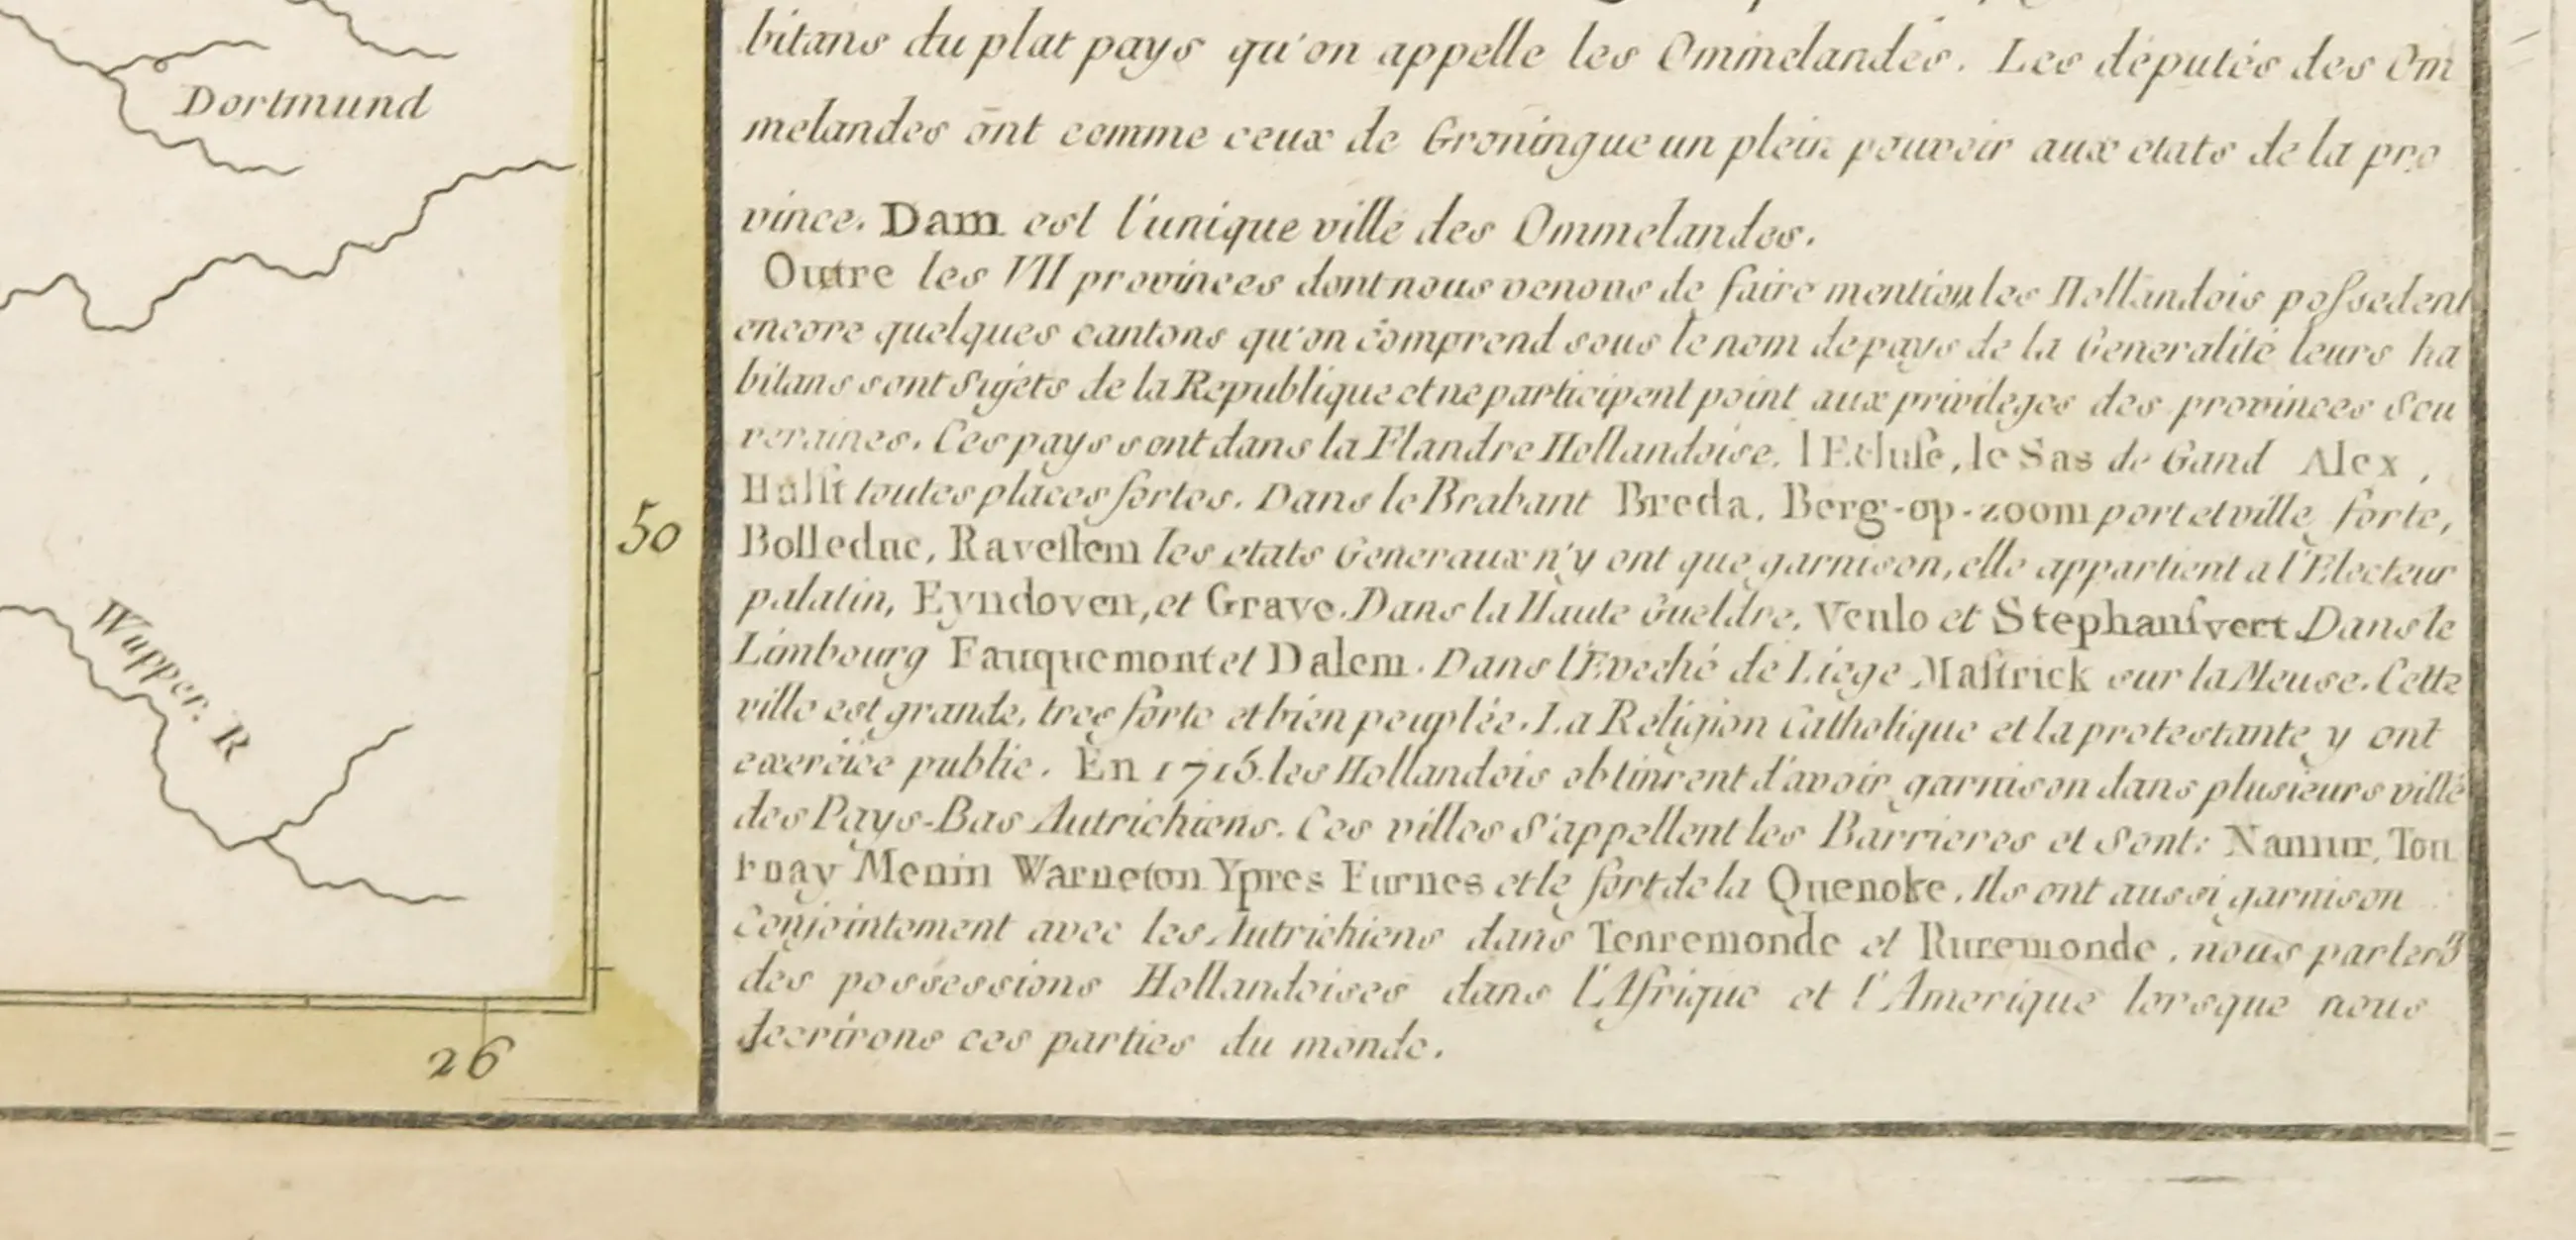 bitans du plat pays qu'on appelle les Ommelandes. Les députés des Om
melandes ont comme ceux de Groningue un plein pouvoir aux etats de la pro
vince. Dam est l'unique ville des Ommelandes.
Outre les VII provinces dont nous venons de faire mention les Hollandois possedent
encore quelques cantons qu'on comprend sous le nom de pays de la Generalité leurs ha
bitans sont Sujets de la Republique et ne participent point aux privileges des provinces Sou
veraines. Ces pays sont dans la Flandre Hollandoise. l'Ecluse, le Sas de Gand Alex,
Hulst toutes places fortes. Dans le Brabant Breda, Berg-op-zoom port et ville forte,
Bolleduc, Ravestem les etats Generaux n'y ont que garnison, elle appartient a l'Electeur
palatin, Eyndoven, et Grave. Dans la Haute Gueldre, Venlo et Stephansvert Dans le
Limbourg Fauquemont et Dalem. Dans l'Eveché de Liege Mastrick sur la Meuse. Cette
ville est grande, tres forte et bien peuplée. La Religion Catholique et la protestante y ont
exercice public. En 1715. les Hollandois obtinrent d'avoir garnison dans plusieurs ville
des Pays-Bas Autrichiens. Ces villes S'appellent les Barrieres et Sont: Namur, Tou
rnay Menin Warneton Ypres Furnes et le fort de la Quenoke. Ils ont aussi garnison
Conjointement avec les Autrichiens dans Tenremonde et Ruremonde. nous parlerõs
des possessions Hollandoises dans l'Afrique et l'Amerique lorsque nous
decrirons ces parties du monde.
Dortmund
50
Wupper. R
26